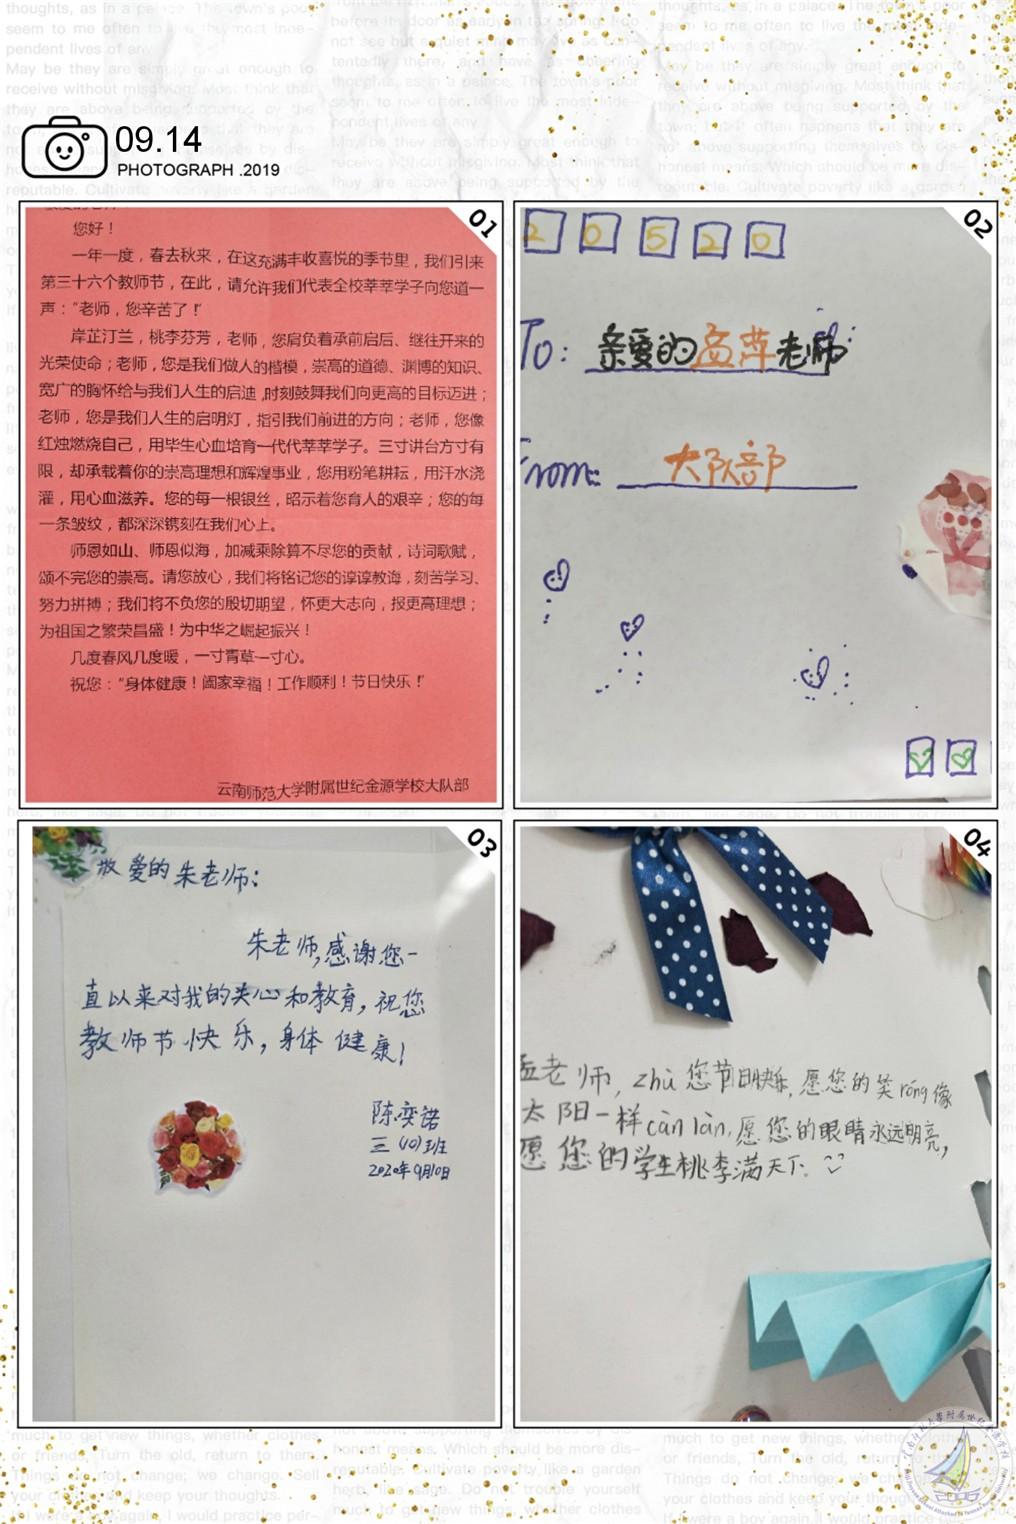 09.14
PHOTOGRAPH .2019
01
您好！
一年一度，春去秋来，在这充满丰收喜悦的季节里，我们引来
第三十六个教师节，在此，请允许我们代表全校莘莘学子向您道一
声：“老师，您辛苦了！”
岸芷汀兰，桃李芬芳，老师，您肩负着承前启后、继往开来的
光荣使命；老师，您是我们做人的楷模，崇高的道德、渊博的知识、
宽广的胸怀给与我们人生的启迪，时刻鼓舞我们向更高的目标迈进；
老师，您是我们人生的启明灯，指引我们前进的方向；老师，您像
红烛燃烧自己，用毕生心血培育一代代莘莘学子。三寸讲台方寸有
限，却承载着你的崇高理想和辉煌事业，您用粉笔耕耘，用汗水浇
灌，用心血滋养。您的每一根银丝，昭示着您育人的艰辛；您的每
一条皱纹，都深深镌刻在我们心上。
师恩如山、师恩似海，加减乘除算不尽您的贡献，诗词歌赋，
颂不完您的崇高。请您放心，我们将铭记您的谆谆教诲，刻苦学习、
努力拼搏；我们将不负您的殷切期望，怀更大志向，报更高理想；
为祖国之繁荣昌盛！为中华之崛起振兴！
几度春风几度暖，一寸青草一寸心。
祝您：“身体健康！阖家幸福！工作顺利！节日快乐！”
云南师范大学附属世纪金源学校大队部
02
2 0 5 2 0
To: 亲爱的孟萍老师:
From: 大队部
03
敬爱的朱老师：
朱老师，感谢您一
直以来对我的关心和教育，祝您
教师节快乐，身体健康！
陈奕诺
三（10）班
2020年9月10日
04
孟老师，zhù您节日快乐，愿您的笑róng像
太阳一样càn làn，愿您的眼睛永远明亮，
愿您的学生桃李满天下.